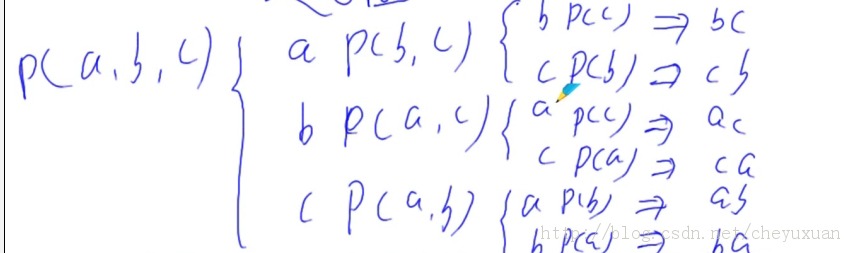 b p(c) ⇒ bc
p(a,b,c) { a p(b,c) { c p(b) ⇒ cb
b p(a,c) { a p(c) ⇒ ac
c p(a) ⇒ ca
c p(a,b) { a p(b) ⇒ ab
b p(a) ⇒ ba
http://blog.csdn.net/cheyuxuan